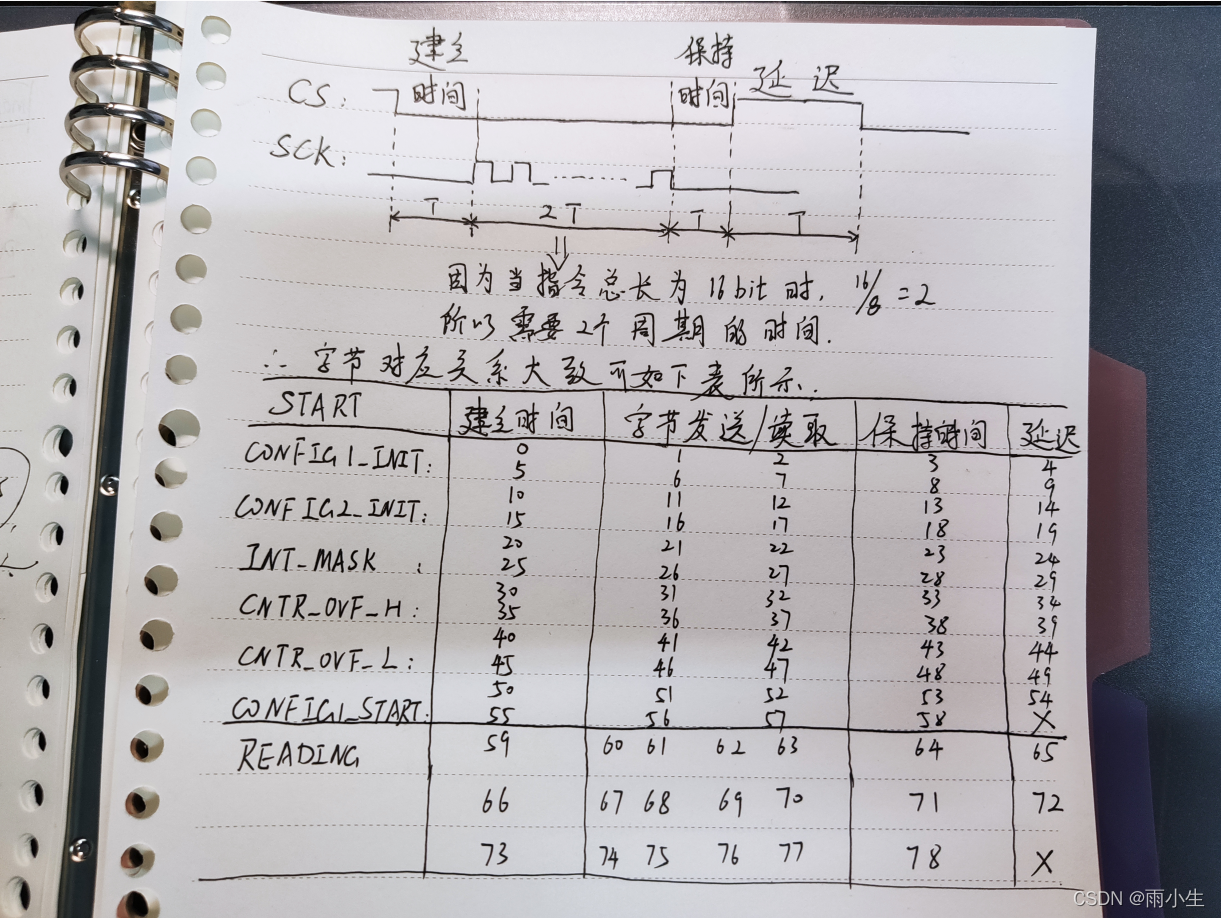 建立 保持
CS: 时间 时间 延迟
SCK:
T 2T T T
因为当指令总长为16bit时, 16/8=2
所以需要2个周期的时间.
∴字节对应关系大致可如下表所示:
START 建立时间 字节发送/读取 保持时间 延迟
CONFIG1_INIT: 0 1 2 3 4
5 6 7 8 9
CONFIG2_INIT: 10 11 12 13 14
15 16 17 18 19
INT_MASK : 20 21 22 23 24
25 26 27 28 29
CNTR_OVF_H: 30 31 32 33 34
35 36 37 38 39
CNTR_OVF_L: 40 41 42 43 44
45 46 47 48 49
CONFIG1_START: 50 51 52 53 54
55 56 57 58 X
READING 59 60 61 62 63 64 65
66 67 68 69 70 71 72
73 74 75 76 77 78 X
CSDN @雨小生